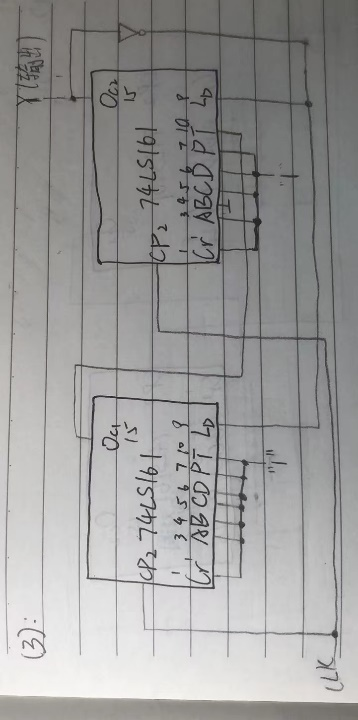 (3):
Y(输出)
Oc1
15
CP2 74LS161
1 3 4 5 6 7 10 9
Cr A B C D P T LD
"1"
Oc2
15
CP2 74LS161
1 3 4 5 6 7 10 9
Cr A B C D P T LD
"1"
CLK